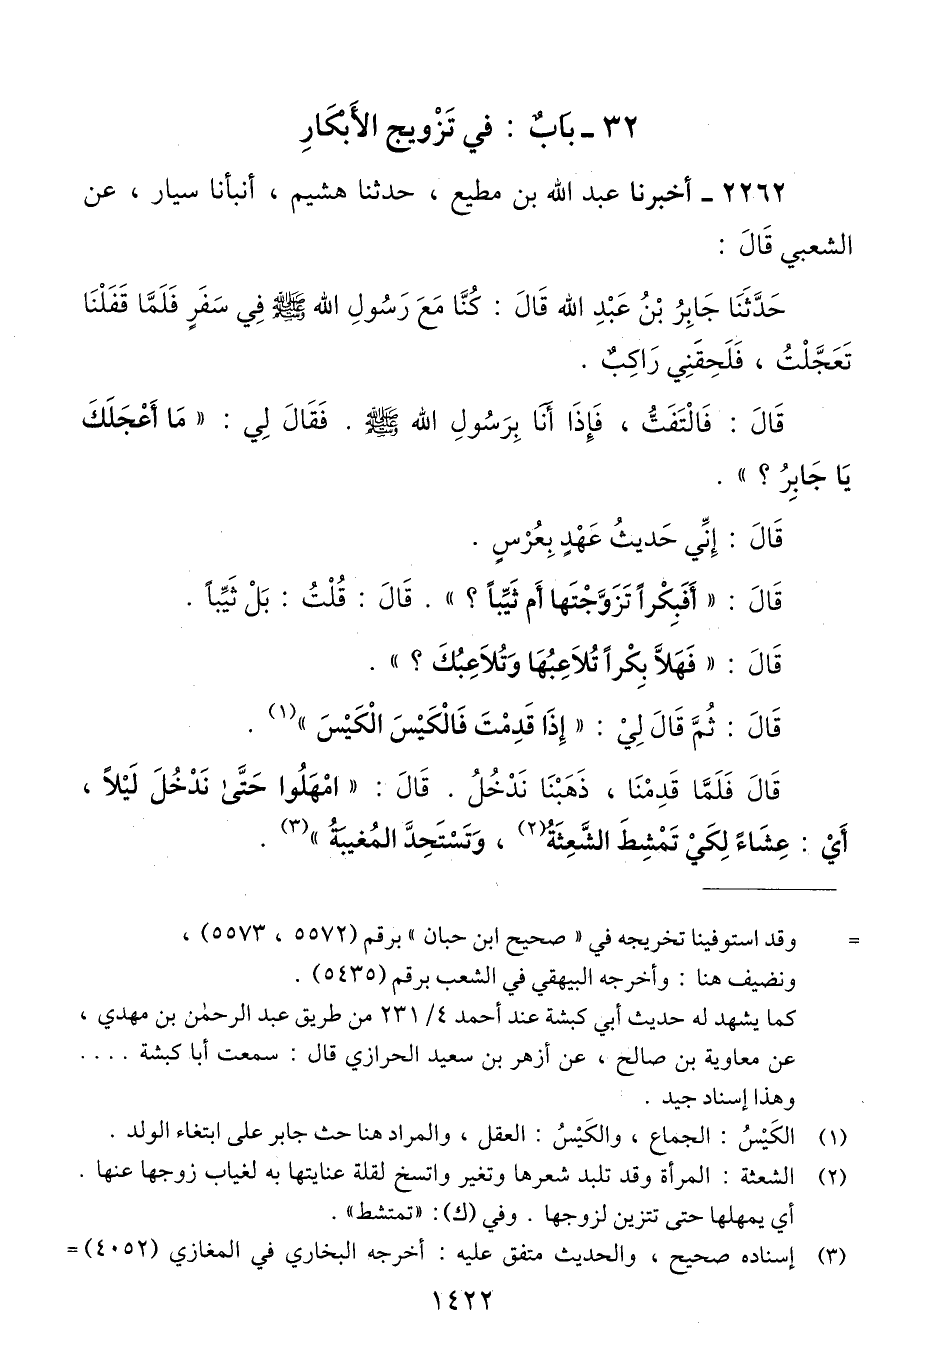 ٣٢ ـ بَابٌ : في تَزْوِيج الأَبْكَارِ
٢٢٦٢ ـ أخبرنا عبد الله بن مطيع ، حدثنا هشيم ، أنبأنا سيار ، عن
الشعبي قَالَ :
حَدَّثَنَا جَابِرُ بْنُ عَبْدِ الله قَالَ : كُنَّا مَعَ رَسُولِ الله ﷺ فِي سَفَرٍ فَلَمَّا قَفَلْنَا
تَعَجَّلْتُ ، فَلَحِقَنِي رَاكِبٌ .
قَالَ : فَالْتَفَتُّ ، فَإِذَا أَنَا بِرَسُولِ الله ﷺ . فَقَالَ لِي : « مَا أَعْجَلَكَ
يَا جَابِرُ ؟ » .
قَالَ : إِنِّي حَدِيثُ عَهْدٍ بِعُرْسٍ .
قَالَ : « أَفَبِكْراً تَزَوَّجْتَها أم ثَيِّباً ؟ » . قَالَ : قُلْتُ : بَلْ ثَيِّباً .
قَالَ : « فَهَلاَّ بِكْراً تُلاَعِبُهَا وَتُلاَعِبُكَ ؟ » .
قَالَ : ثُمَّ قَالَ لِيْ : « إِذَا قَدِمْتَ فَالْكَيْسَ الْكَيْسَ »(١) .
قَالَ فَلَمَّا قَدِمْنَا ، ذَهَبْنَا نَدْخُلُ . قَالَ : « امْهَلُوا حَتَّىٰ نَدْخُلَ لَيْلاً ،
أَيْ : عِشَاءً لِكَيْ تَمْشِطَ الشَّعِثَةُ(٢) ، وَتَسْتَحِدَّ المُغِيبَةُ »(٣) .
= وقد استوفينا تخريجه في « صحيح ابن حبان » برقم (٥٥٧٢ ، ٥٥٧٣) ،
ونضيف هنا : وأخرجه البيهقي في الشعب برقم (٥٤٣٥) .
كما يشهد له حديث أبي كبشة عند أحمد ٤/ ٢٣١ من طريق عبد الرحمٰن بن مهدي ،
عن معاوية بن صالح ، عن أزهر بن سعيد الحرازي قال : سمعت أبا كبشة ....
وهذا إسناد جيد .
(١) الكَيْسُ : الجماع ، والكَيْسُ : العقل ، والمراد هنا حث جابر على ابتغاء الولد .
(٢) الشعثة : المرأة وقد تلبد شعرها وتغير واتسخ لقلة عنايتها به لغياب زوجها عنها .
أي يمهلها حتى تتزين لزوجها . وفي (ك): «تمتشط» .
(٣) إسناده صحيح ، والحديث متفق عليه : أخرجه البخاري في المغازي (٤٠٥٢)=
١٤٢٢